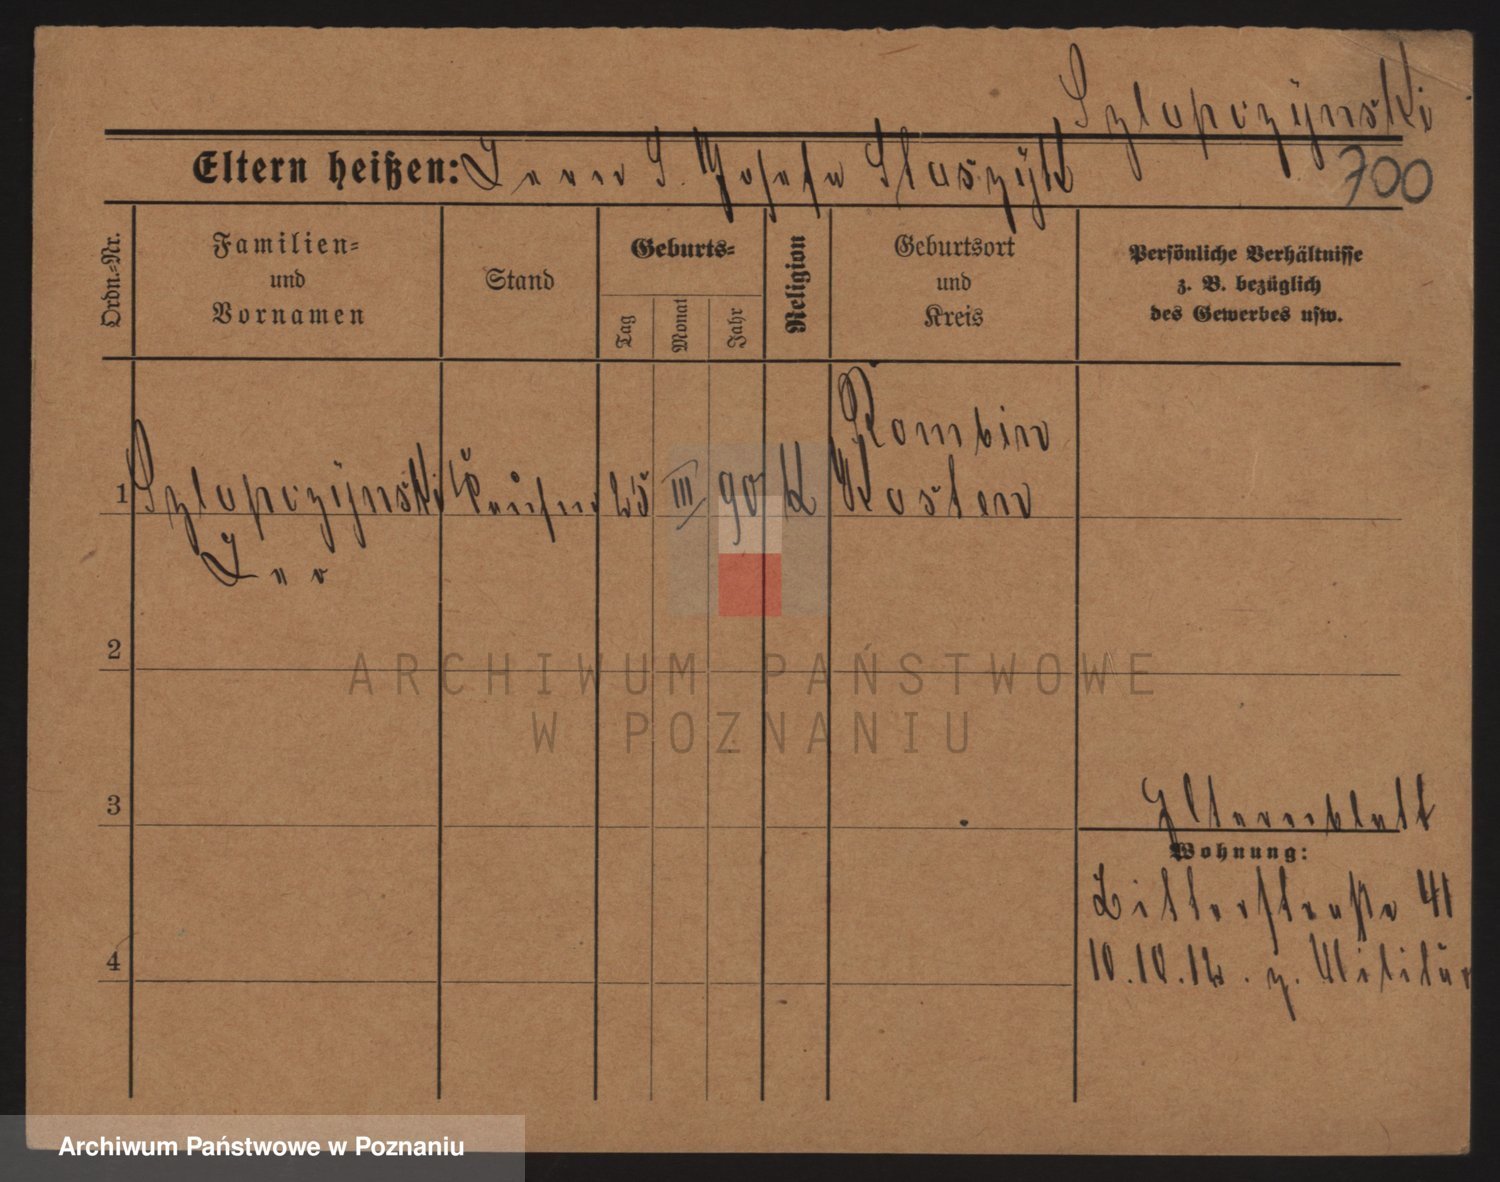 Szlapczynski
Eltern heißen: S. Josefa Staszyk
700
Ordn.-Nr.
Familien-
und
Vornamen
Stand
Geburts-
Tag
Monat
Jahr
Religion
Geburtsort
und
Kreis
Persönliche Verhältnisse
z. B. bezüglich
des Gewerbes usw.
1 Szlapczynski 25 III 90 K Rombin
Kosten
Leo
2
ARCHIWUM PAŃSTWOWE
W POZNANIU
3
Elternblatt
Wohnung:
Bitterstraße 41
4
10.10.12. z. Militär
Archiwum Państwowe w Poznaniu